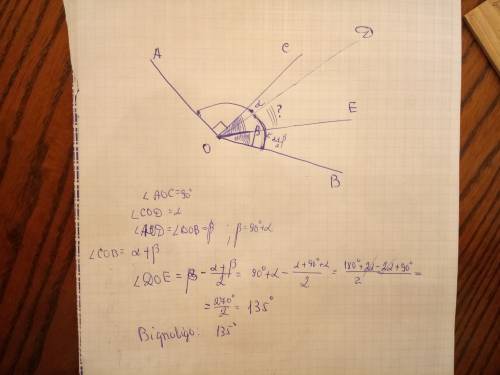 A
C
D
α
?
E
β
O
B
∠AOC=90°
∠COD=α
∠AOD=∠DOB=β ; β=90°+α
∠COB= α+β
∠DOE = β - α+β/2 = 90°+α - α+90°+α/2 = 180°+2α-2α+90°/2 =
= 270°/2 = 135°
Відповідь: 135°